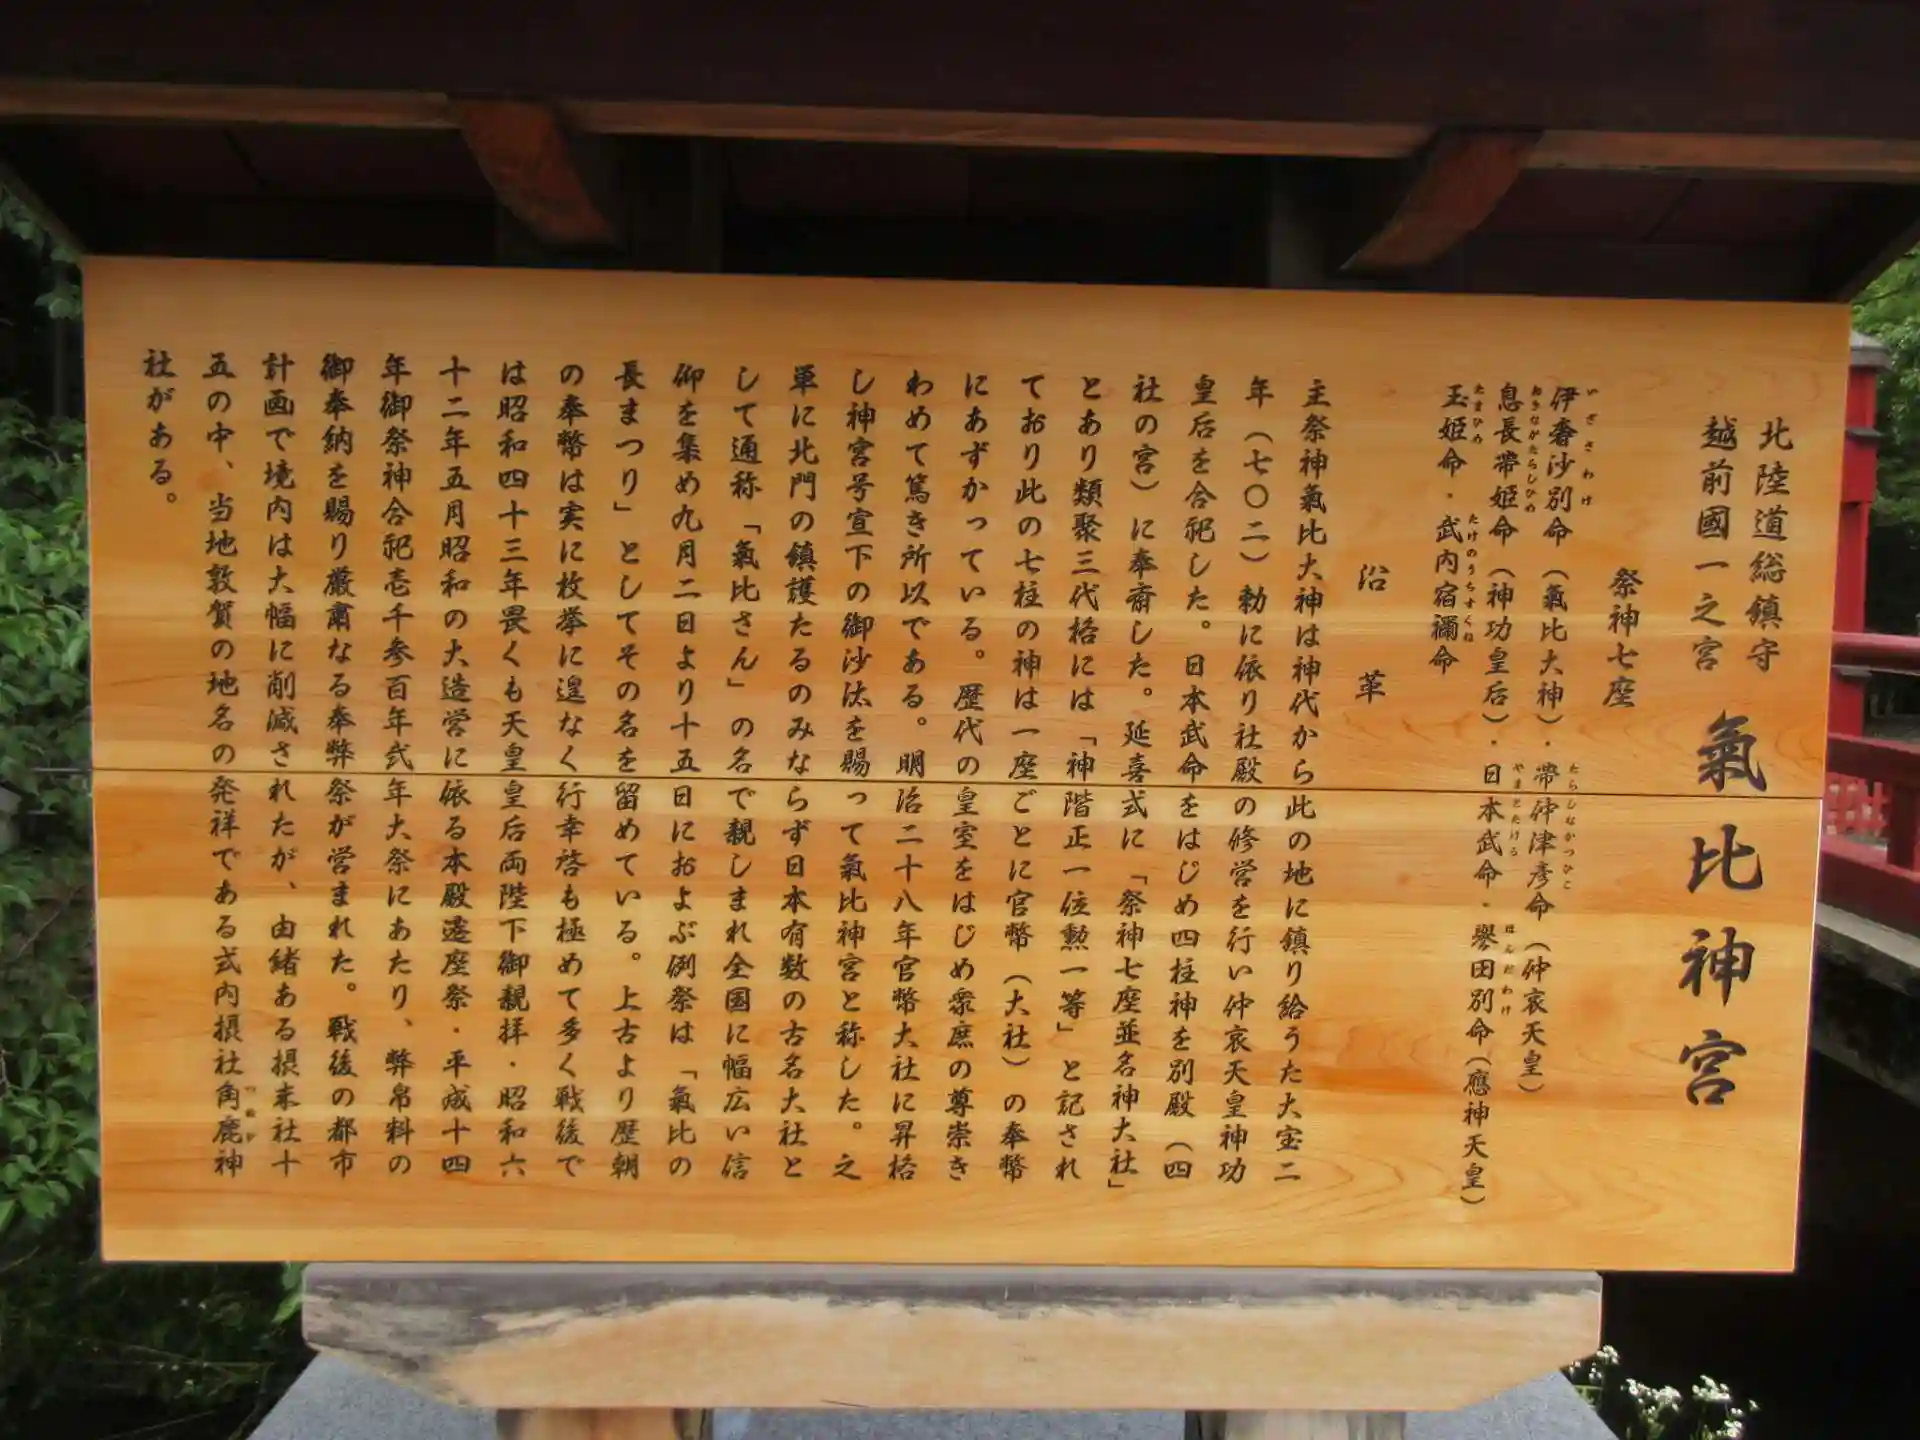 北陸道総鎮守
越前國一之宮 氣比神宮
祭神七座
伊奢沙別命（氣比大神）・帶仲津彦命（仲哀天皇）
息長帶姫命（神功皇后）・日本武命・譽田別命（應神天皇）
玉姫命・武内宿禰命
沿革
主祭神氣比大神は神代から此の地に鎮り給うた大宝二
年（七〇二）勅に依り社殿の修営を行い仲哀天皇神功
皇后を合祀した。日本武命をはじめ四柱神を別殿（四
社の宮）に奉斎した。延喜式に「祭神七座並名神大社」
とあり類聚三代格には「神階正一位勲一等」と記され
ており此の七柱の神は一座ごとに官幣（大社）の奉幣
にあずかっている。歴代の皇室をはじめ衆庶の尊崇き
わめて篤き所以である。明治二十八年官幣大社に昇格
し神宮号宣下の御沙汰を賜って氣比神宮と称した。之
単に北門の鎮護たるのみならず日本有数の古名大社と
して通称「氣比さん」の名で親しまれ全国に幅広い信
仰を集め九月二日より十五日におよぶ例祭は「氣比の
長まつり」としてその名を留めている。上古より歴朝
の奉幣は実に枚挙に遑なく行幸啓も極めて多く戦後で
は昭和四十三年畏くも天皇皇后両陛下御親拝・昭和六
十二年五月昭和の大造営に依る本殿遷座祭・平成十四
年御祭神合祀壱千参百年式年大祭にあたり、幣帛料の
御奉納を賜り厳粛なる奉幣祭が営まれた。戦後の都市
計画で境内は大幅に削減されたが、由緒ある摂末社十
五の中、当地敦賀の地名の発祥である式内摂社角鹿神
社がある。